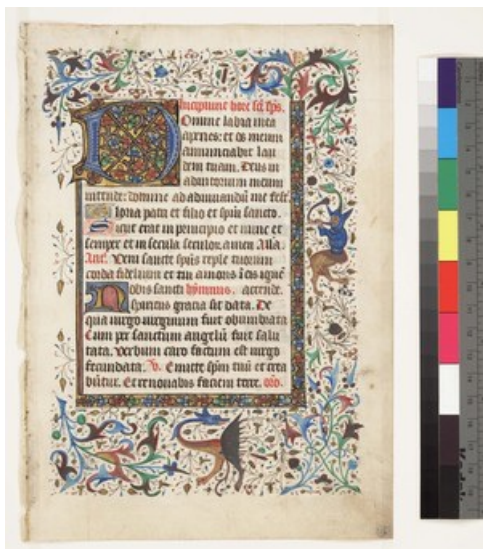 Incipiunt hore scī sps.
Domine labia mea
aperies: et os meum
annunciabit lau
dem tuam. Deus in
adiutorium meum
intende: domine ad adiuvandū me fest.
Gloria patri et filio et spūi sancto.
Sicut erat in principio et nunc et
semper et in secula seculoꝝ. amen. Alla.
Anᵃ. Veni sancte spūs reple tuorum
corda fidelium et tui amoris ī eis ignē
Nobis sancti hymnus. accende.
spiritus gracia sit data. De
qua virgo virginum fuit obumbrata
Cum per sanctum angelū fuit salu
tata. verbum caro factum est virgo
fecundata. V. Emitte spūm tuū et crea
būtur. Et renovabis faciem terre. orō.